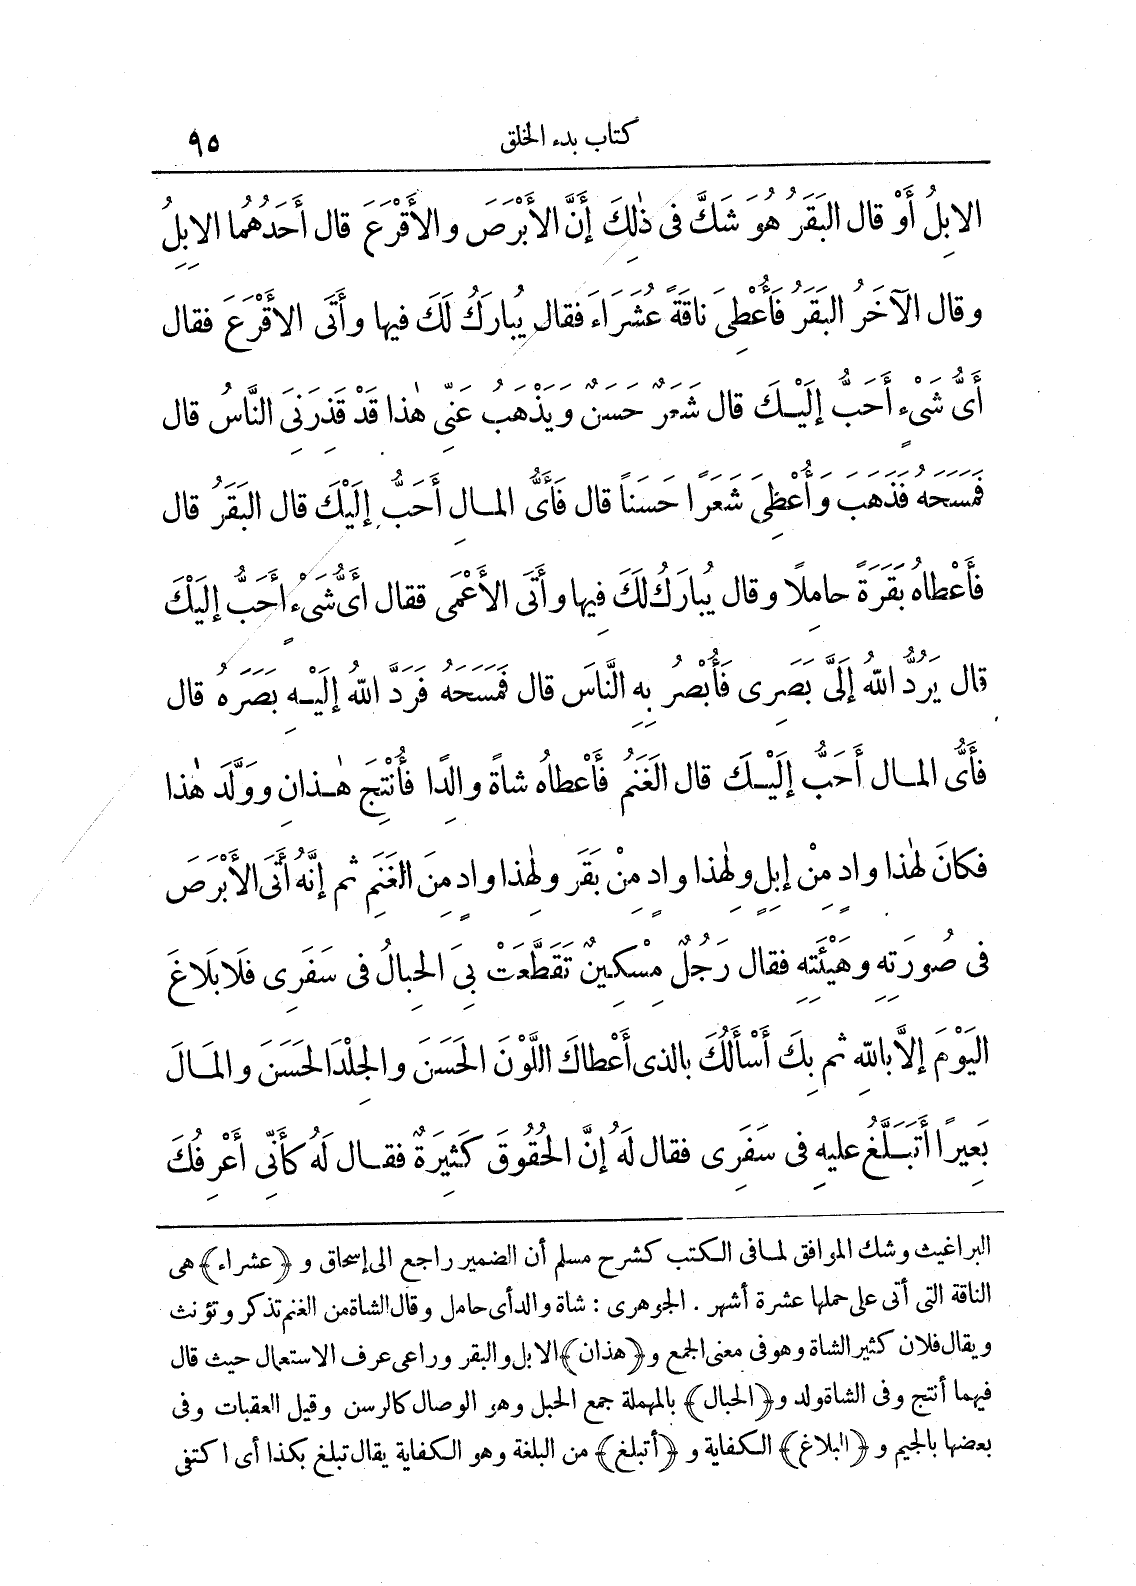 كتاب بدء الخلق
٩٥
الابِلُ أَوْ قال البَقَرُ هُوَ شَكَّ فى ذٰلِكَ إنَّ الأَبْرَصَ والأَقْرَعَ قال أَحَدُهُما الابِلُ
وقال الآخَرُ البَقَرُ فَأُعْطِىَ ناقَةً عُشَرَاءَ فقال يُبارَكُ لَكَ فيها وأَتَى الاقْرَعَ فقال
أَىُّ شَىْءٍ أَحَبُّ إلَيْـكَ قال شَعَرٌ حَسَنٌ ويَذْهَبُ عَنِّى هٰذا قَدْ قَذِرَنِىَ النَّاسُ قال
فَمَسَحَهُ فَذَهَبَ وَأُعْطِىَ شَعَرًا حَسَناً قال فَأَىُّ المـالِ أَحَبُّ إلَيْكَ قال البَقَرُ قال
فَأَعْطاهُ بَقَرَةً حامِلًا وقال يُبارَكُ لَكَ فِيها وأَتَى الأَعْمَى فقال أَىُّ شَىْءٍ أَحَبُّ إلَيْكَ
قال يَرُدُّ اللهُ إلَىَّ بَصَرِى فَأُبْصِرُ بِهِ النَّاسَ قال فَمَسَحَهُ فَرَدَّ اللهُ إلَيْـهِ بَصَرَهُ قال
فَأَىُّ المـالِ أَحَبُّ إلَيْـكَ قال الغَنَمُ فَأَعْطاهُ شاةً والِدًا فَأُنْتِجَ هٰـذانِ ووَلَّدَ هٰذا
فكانَ لهٰذا وادٍ مِنْ إبِلٍ ولهٰذا وادٍ مِنْ بَقَرٍ ولِهٰذا وادٍ مِنَ الغَنَمِ ثم إنَّهُ أَتَى الأَبْرَصَ
فى صُورَتِهِ وهَيْئَتِهِ فقال رَجُلٌ مِسْكِينٌ تَقَطَّعَتْ بِىَ الحِبالُ فى سَفَرِى فَلَا بَلَاغَ
اليَوْمَ إلاَّ باللهِ ثم بِكَ أَسْأَلُكَ بالذى أَعْطاكَ اللَّوْنَ الحَسَنَ والجِلْدَ الحَسَنَ والمَـالَ
بَعِيرًا أَتَبَـلَّغُ عليهِ فى سَفَرِى فقال لَهُ إنَّ الحُقُوقَ كَثِيرَةٌ فقـال لَهُ كأَنِّى أَعْرِفُكَ
البراغيث وشك الموافق لمـا فى الـكتب كشرح مسلم أن الضمير راجع الى إسحاق و ﴿عشراء﴾ هى
الناقة التى أتى على حملها عشرة أشهر . الجوهرى : شاة والد أى حامل وقال الشاة من الغنم تذكر وتؤنث
ويقال فلان كثير الشاة وهو فى معنى الجمع و﴿هذان﴾ الابل والبقر وراعى عرف الاستعمال حيث قال
فيهما أنتج وفى الشاة ولد و﴿الحبال﴾ بالمهملة جمع الحبل وهو الوصال كالرسن وقيل العقبات وفى
بعضها بالجيم و ﴿البلاغ﴾ الـكفاية و ﴿أتبلغ﴾ من البلغة وهو الـكفاية يقال تبلغ بكذا أى اكتفى